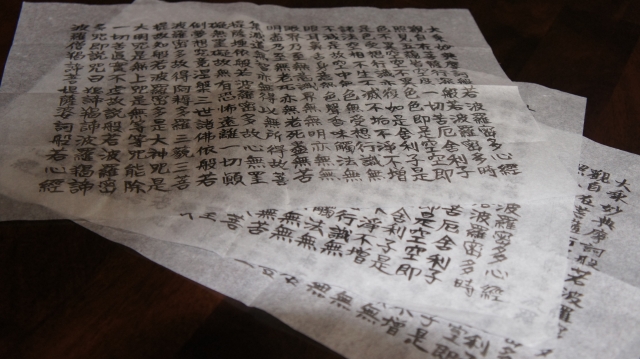 大乗妙典摩訶般若波羅蜜多心経
観自在菩薩行深般若波羅蜜多時
照見五蘊皆空度一切苦厄舎利子
色不異空空不異色色即是空空即
是色受想行識亦復如是舎利子是
諸法空相不生不滅不垢不浄不増
不減是故空中無色無受想行識無
眼耳鼻舌身意無色声香味触法無
眼界乃至無意識界無無明亦無無
明尽乃至無老死亦無老死尽無苦
集滅道無智亦無得以無所得故菩
提薩埵依般若波羅蜜多故心無罣
礙無罣礙故無有恐怖遠離一切顛
倒夢想究竟涅槃三世諸佛依般若
波羅蜜多故得阿耨多羅三藐三菩
提故知般若波羅蜜多是大神呪是
大明呪是無上呪是無等等呪能除
一切苦真実不虚故説般若波羅蜜
多呪即説呪曰掲諦掲諦波羅掲諦
波羅僧掲諦菩提薩婆訶般若心経
波羅蜜多心経
若波羅蜜多時
苦厄舎利子
是空空即
舎利子是
不浄不増
行識無
触法無
無無
大乗妙典摩訶般若波羅蜜
観自在菩薩行